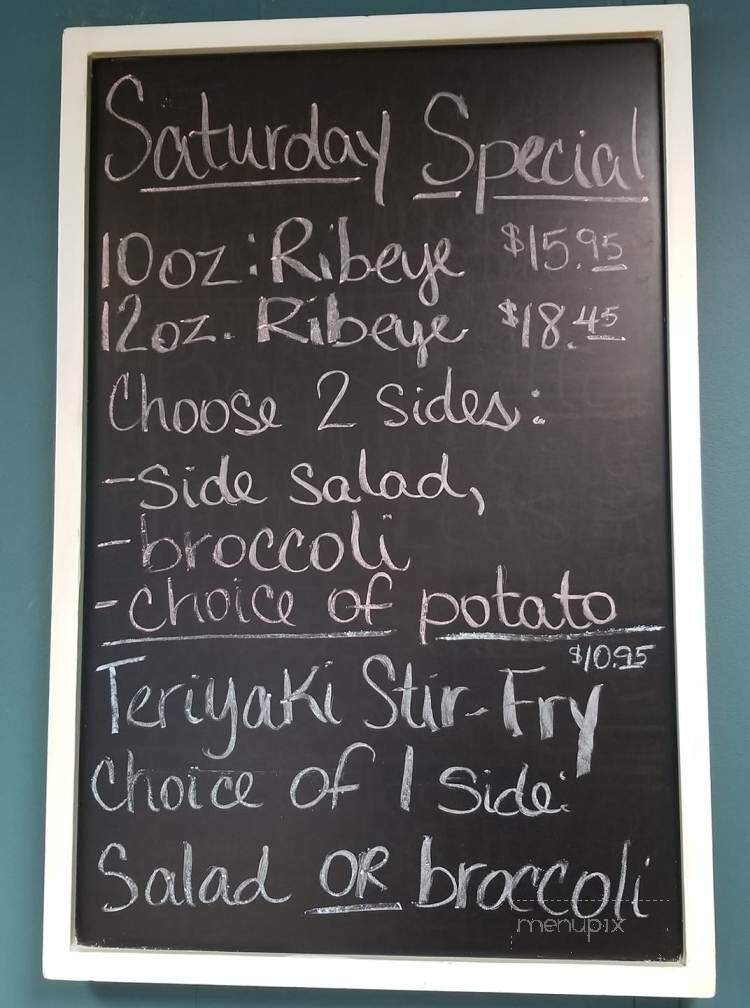 Saturday Special
10oz. Ribeye $15.95
12oz. Ribeye $18.45
Choose 2 sides:
- Side salad,
- broccoli
- choice of potato
$10.95
Teriyaki Stir-Fry
Choice of 1 Side:
Salad OR broccoli
menupix